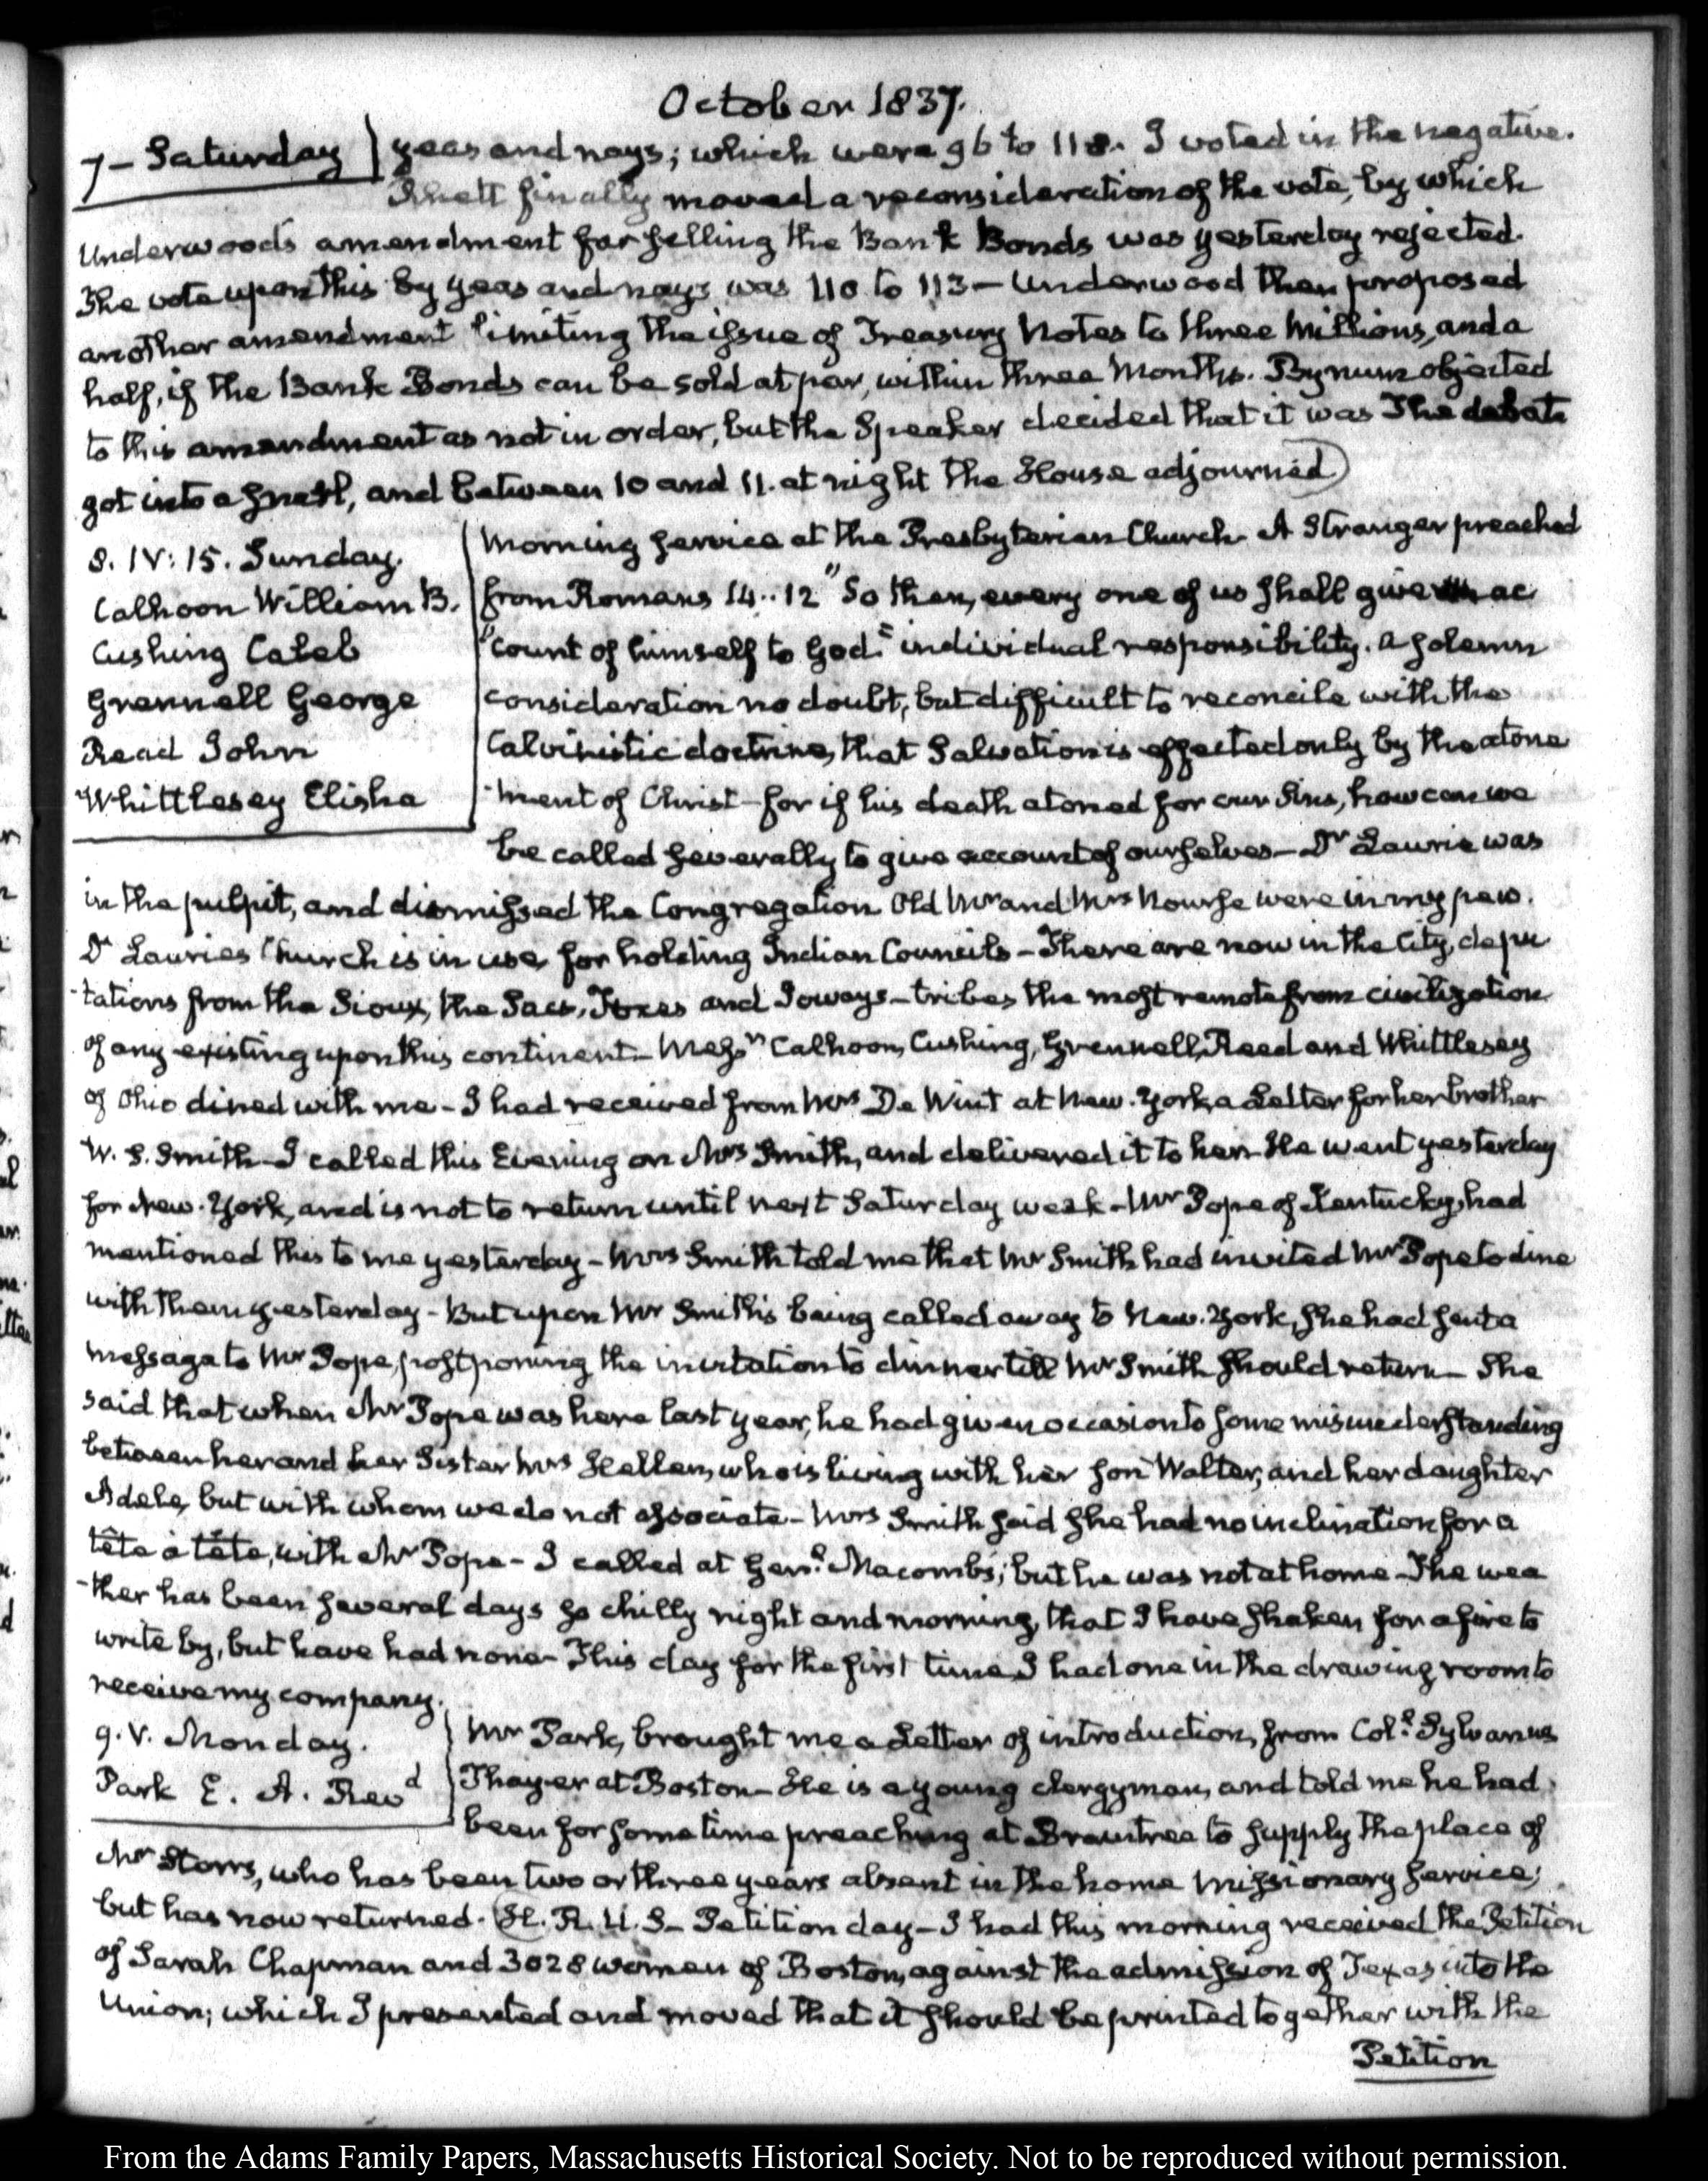 October 1837.
7 – Saturday
yeas and nays; which were 96 to 118. I voted in the negative.
Rhett finally moved a reconsideration of the vote, by which
Underwood's amendment for selling the Bank Bonds was yesterday rejected.
The vote upon this by yeas and nays was 110 to 113 – Underwood then proposed
another amendment limiting the issue of Treasury Notes to three Millions, and a
half, if the Bank Bonds can be sold at par, within three Months. Bynum objected
to this amendment as not in order, but the Speaker decided that it was The debate
got into a snarl, and between 10 and 11. at night the House adjourned)
8. IV: 15. Sunday.
Calhoon William B.
Cushing Caleb
Grennell George
Read John
Whittlesey Elisha
Morning service at the Presbyterian Church. A Stranger preached
from Romans 14..12 "So then, every one of us shall give ac
"count of himself to God." individual responsibility. a solemn
consideration no doubt, but difficult to reconcile with the
Calvinistic doctrine, that Salvation is effected only by the atone
-ment of Christ – for if his death atoned for our Sins, how can we
be called severally to give account of ourselves – Dr Laurie was
in the pulpit, and dismissed the Congregation Old Mr and Mrs Nourse were in my pew.
Dr Lauries Church is in use, for holding Indian Councils – There are now in the City, depu
-tations from the Sioux, the Sacs, Foxes and Ioways – tribes the most remote from civilization
of any existing upon this continent – Messrs Calhoon, Cushing, Grennell, Reed and Whittlesey
of Ohio dined with me – I had received from Mrs De Wint at New-York, a Letter for her brother
W. S. Smith – I called this Evening on Mrs Smith, and delivered it to her – He went yesterday
for New-York, and is not to return until next Saturday week – Mr Pope of Kentucky, had
mentioned this to me yesterday – Mrs Smith told me that Mr Smith had invited Mr Pope to dine
with them yesterday – But upon Mr Smith's being called away to New-York, she had sent a
message to Mr Pope, postponing the invitation to dinner till Mr Smith should return – She
said that when Mr Pope was here last year, he had given occasion to some misunderstanding
between her and her Sister Mrs Hellen, who is living with her son Walter, and her daughter
Adele, but with whom we do not associate – Mrs Smith said she had no inclination for a
tête à tête, with Mr Pope – I called at Genl. Macombs; but he was not at home – The wea
-ther has been several days so chilly night and morning, that I have shaken for a fire to
write by, but have had none – This day for the first time I had one in the drawing room to
receive my company.
9. V. Monday.
Park E. A. Revd
Mr Park, brought me a Letter of introduction, from Col. Sylvanus
Thayer at Boston – He is a young clergyman, and told me he had
been for some time preaching at Braintree to supply the place of
Mr Storrs, who has been two or three years absent in the home Missionary service;
but has now returned. (H. R. U. S – Petition day – I had this morning received the Petition
of Sarah Chapman and 3028 women of Boston, against the admission of Texas into the
Union; which I presented and moved that it should be printed together with the
Petition
From the Adams Family Papers, Massachusetts Historical Society. Not to be reproduced without permission.